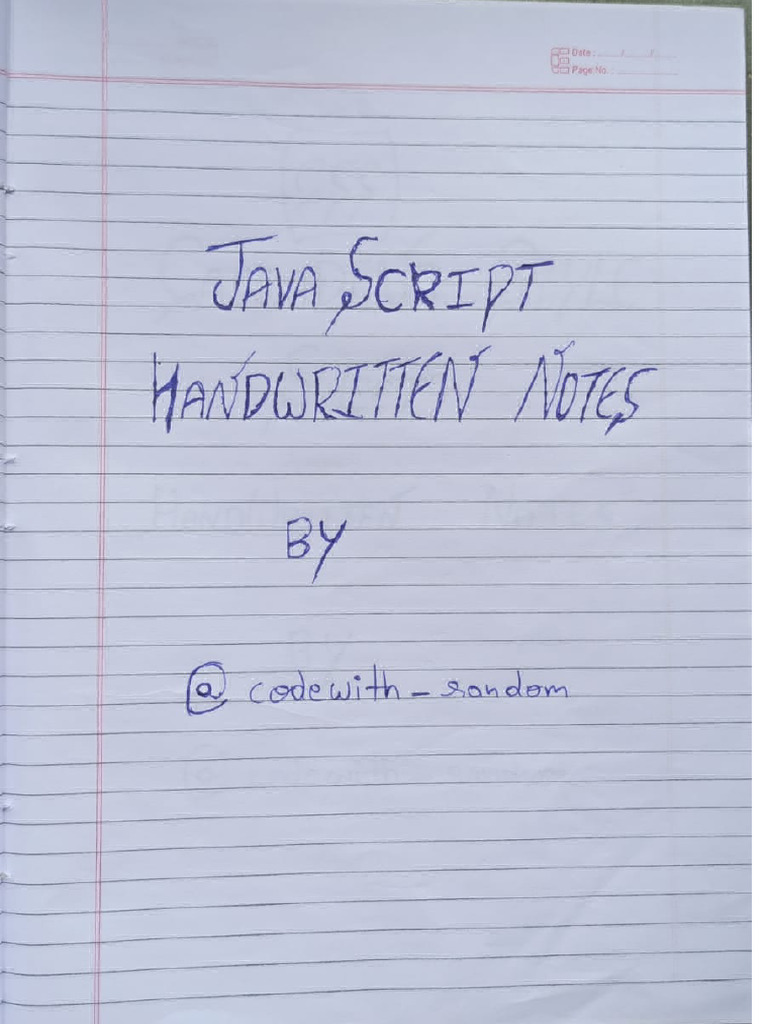 Date : ........ / ........ / ........
Page No. : ................
JAVA SCRIPT
HANDWRITTEN NOTES
BY
@ codewith_random